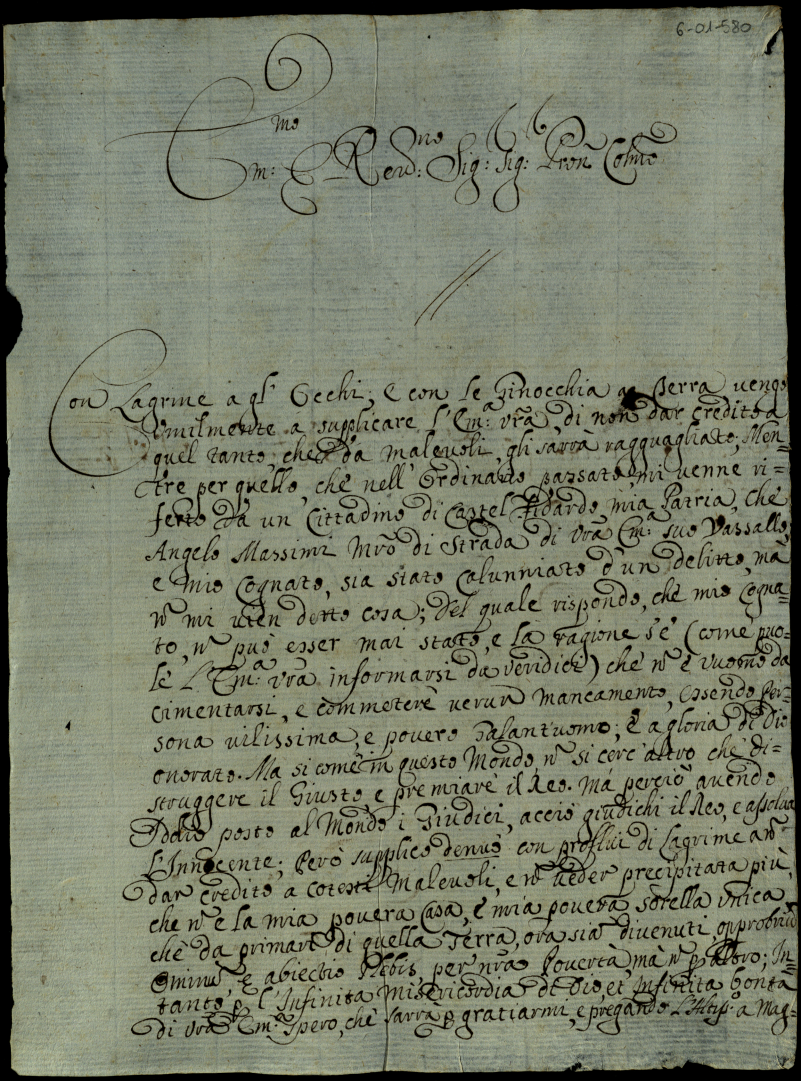 6-01-580
Em:mo E Reu:mo Sig: Sig: Pron Colmo
Con Lagrime a gl' Occhi, e con le Ginocchia a Terra uengo
Vmilmente a supplicare l'Em:a Vrã, di non dar credito a
quel tanto, che da maleuoli, gli sarra ragguagliato; Men-
tre per quello, che nell'Ordinario passato mi uenne ri=
ferto da un Cittadino di Castel Fidardo mia Patria, che
Angelo Massimi Mrõ di Strada di Vrã Em:a suo Vassallo,
e mio Cognato, sia stato Calunniato d'un delitto, mà
ñ mi uien detto cosa; Del quale rispondo, che mio Cogna=
to, ñ può esser mai stato, e la ragione s'è (come puo-
le L'Em:a Vrã informarsi da Veridici) che ñ è Vuomo da
cimentarsi, e commetere uerun mancamento, essendo Per-
sona uilissima, e pouero Galant'uomo; E a gloria di Dio
onorato. Ma si come in questo Mondo, ñ si cerc'altro che di=
struggere il Giusto, e premiare il Reo. Mà perciò auendo
Iddio posto al Mondo i Giudici, acciò giudichi il Reo, e assolua
L'Innocente; Però supplico denuo con proflui di Lagrime a ñ
dar credito a cotesti Maleuoli, e ñ ueder precipitata più,
che ñ è la mia pouera Casa, e mia pouera sorella Vnica,
che da primari di quella Terra, ora sian diuenuti opprobriũ
Ominũ, E abiectio Plebis, per nrã Pouertà, mà ñ p altro; In-
tanto p l'Infinita Misericordia di Dio, et infinita bontà
di Vrã Em:a Spero, che sarra p gratiarmi, e pregando l'Altiss:o a Mag-